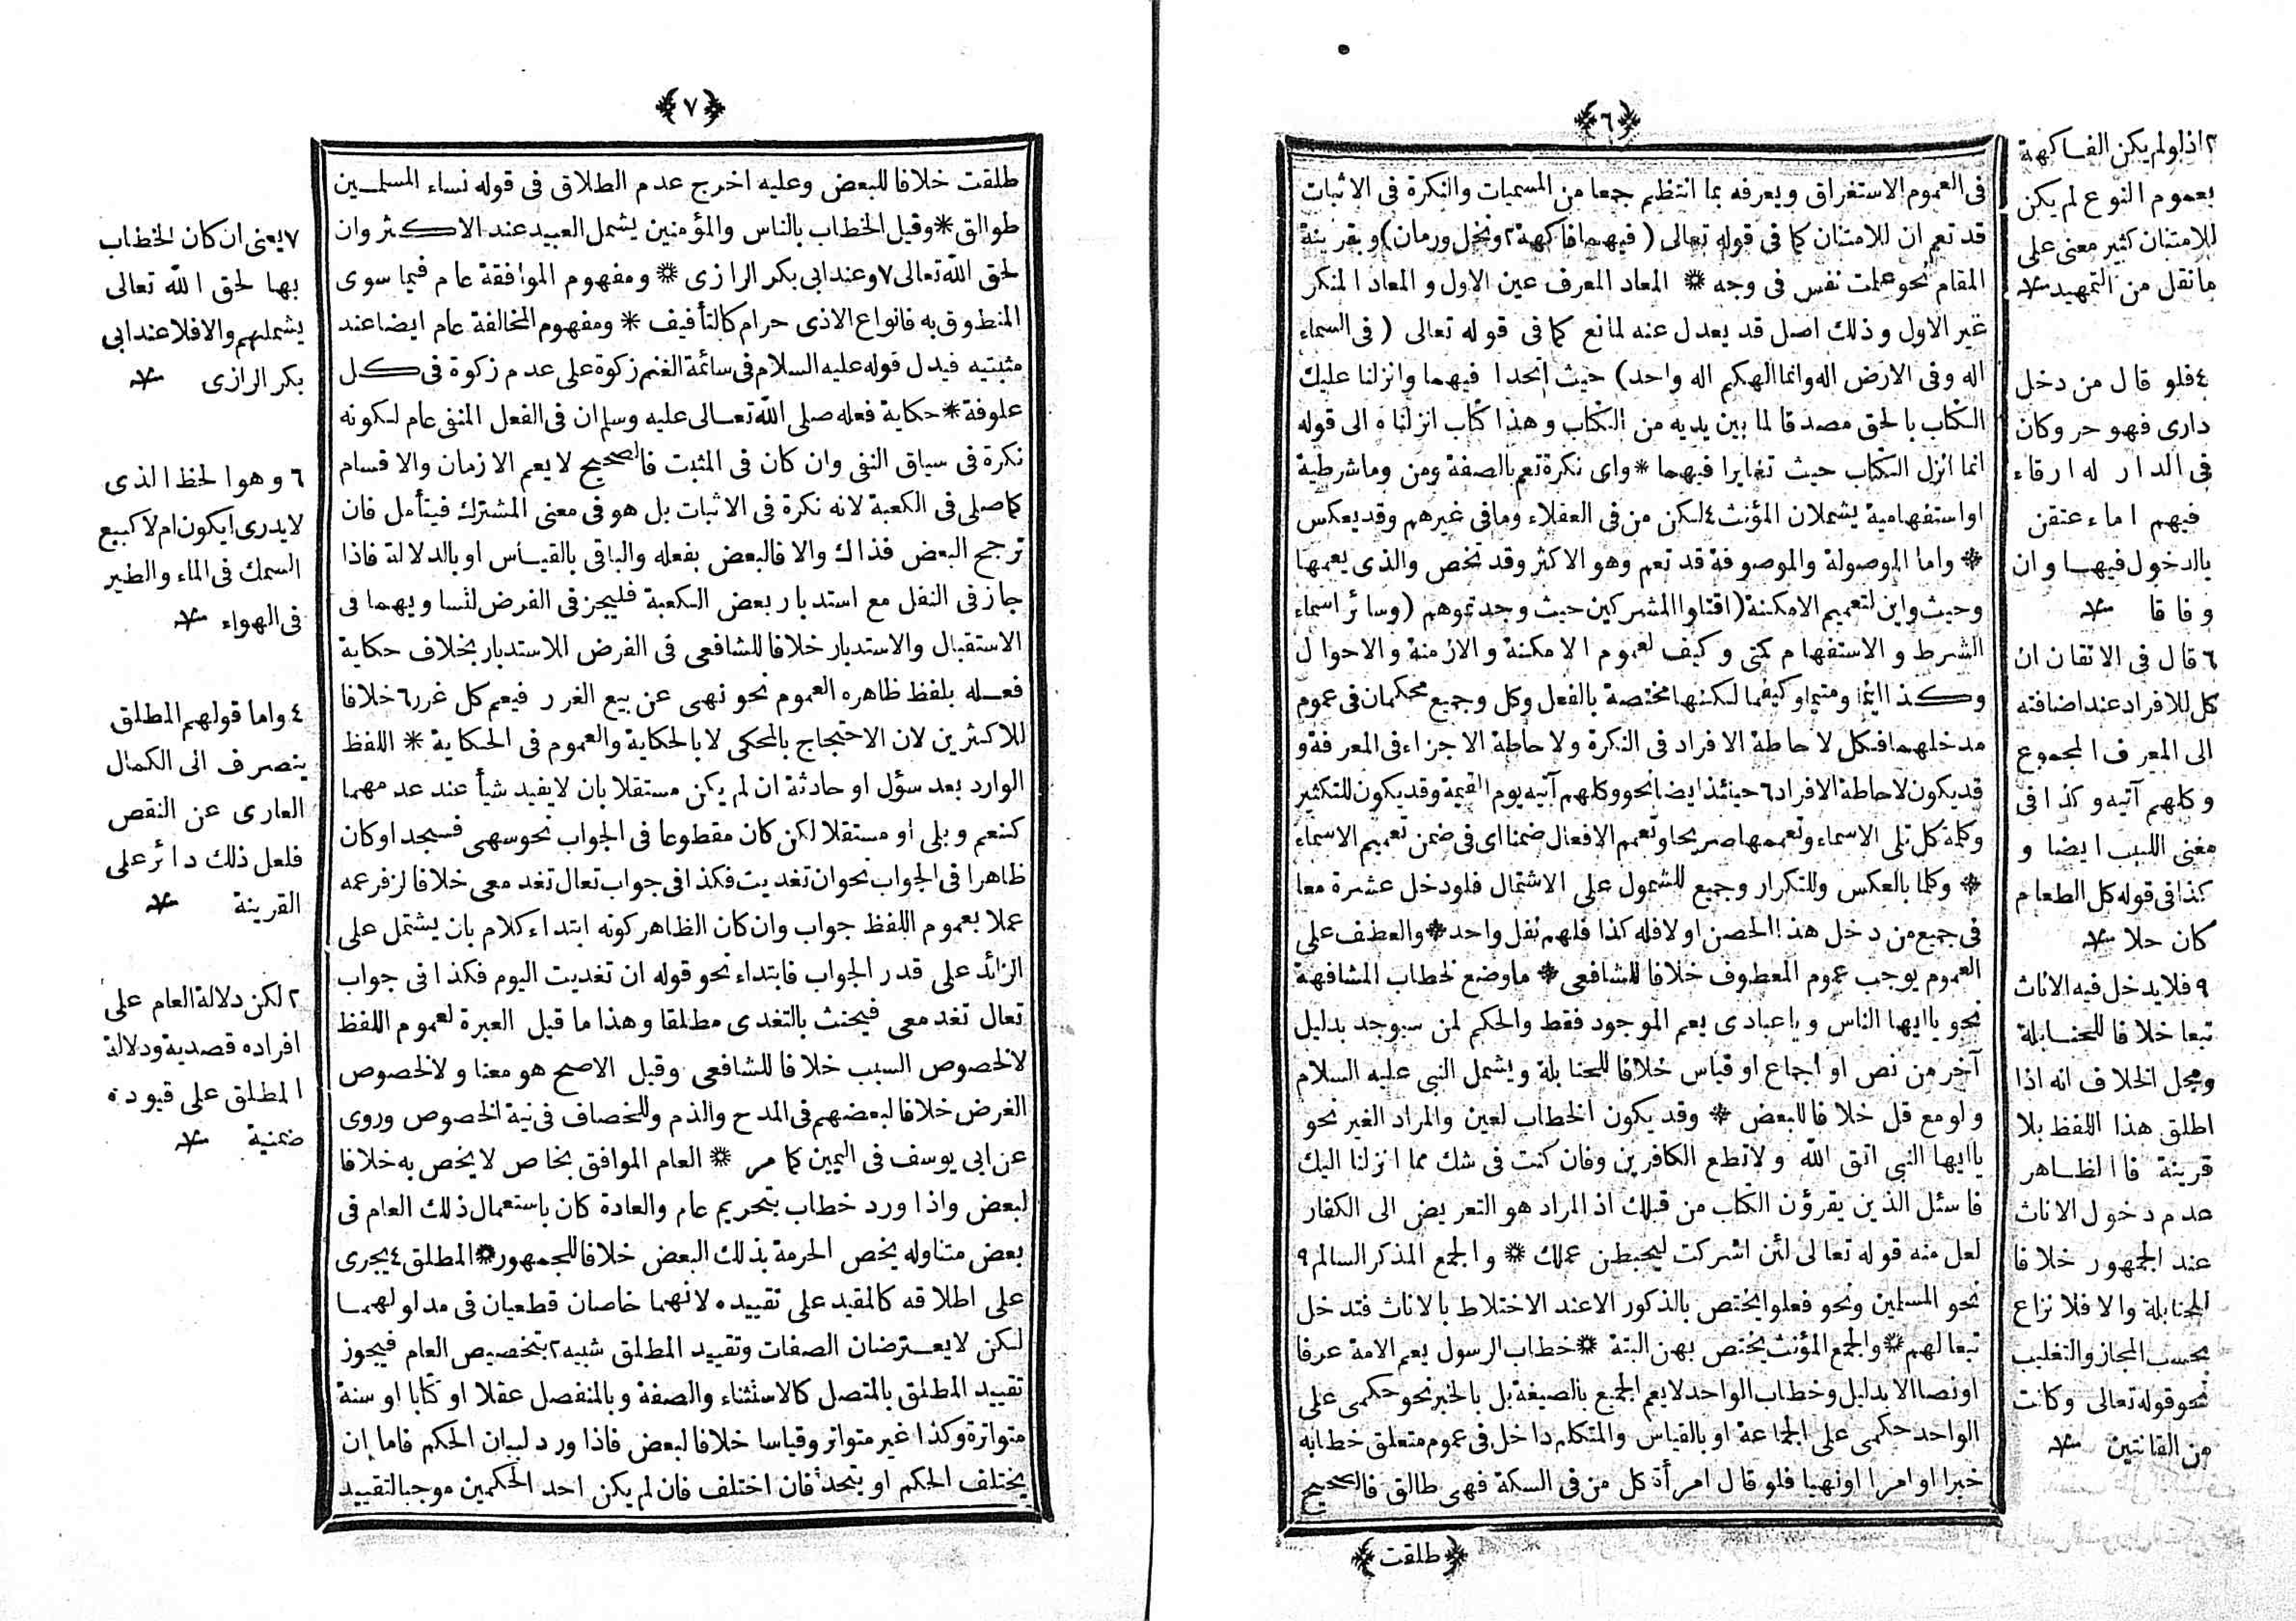 ﴿٦﴾
فى العموم الاستغراق ويعرفه بما انتظم جمعا من المسميات والنكرة فى الاثبات
قد تعم ان للامتنان كما فى قوله تعالى (فيهما فاكهة٢ ونخل ورمان) وبقرينة
المقام نحو علمت نفس فى وجه * المعاد المعرف عين الاول والمعاد المنكر
غير الاول وذلك اصل قد يعدل عنه لمانع كما فى قوله تعالى (فى السماء
اله وفى الارض اله وانما الهكم اله واحد) حيث اتحدا فيهما وانزلنا عليك
الكتاب بالحق مصدقا لما بين يديه من الكتاب وهذا كتاب انزلناه الى قوله
انما انزل الكتاب حيث تغايرا فيهما * واى نكرة تعم بالصفة ومن وما شرطية
او استفهامية يشملان المؤنث٤ لكن من فى العقلاء وما فى غيرهم وقد يعكس
* واما الموصولة والموصوفة قد تعم وهو الاكثر وقد تخص والذى يعمها
وحيث واين لتعميم الامكنة (اقتلوا المشركين حيث وجدتموهم) وسائر اسماء
الشرط والاستفهام كمتى وكيف لعموم الامكنة والازمنة والاحوال
وكذا اينما ومتيما وكيفما لكنها مختصة بالفعل وكل وجميع محكمان فى عموم
مدخلهما فكل لاحاطة الافراد فى النكرة ولاحاطة الاجزاء فى المعرفة و
قد يكون لاحاطة الافراد٦ حينئذ ايضا نحو وكلهم آتيه يوم القيمة وقد يكون للتكثير
وكلمة كل تلى الاسماء وتعممها صريحا وتعمم الافعال ضمنا اى فى ضمن تعميم الاسماء
* وكلما بالعكس وللتكرار وجميع للشمول على الاشتمال فلو دخل عشرة معا
فى جميع من دخل هذا الحصن اولا فله كذا فلهم نفل واحد * والعطف على
العموم يوجب عموم المعطوف خلافا للشافعى * ما وضع لخطاب المشافهة
نحو ياايها الناس وياعبادى يعم الموجود فقط والحكم لمن سيوجد بدليل
آخر من نص او اجماع او قياس خلافا للحنابلة ويشمل النبى عليه السلام
ولو مع قل خلافا للبعض * وقد يكون الخطاب لعين والمراد الغير نحو
ياايها النبى اتق الله ولا تطع الكافرين وفان كنت فى شك مما انزلنا اليك
فاسئل الذين يقرؤن الكتاب من قبلك اذ المراد هو التعريض الى الكفار
لعل منه قوله تعالى لئن اشركت ليحبطن عملك * والجمع المذكر السالم٩
نحو المسلمين ونحو فعلوا يختص بالذكور الا عند الاختلاط بالاناث فتدخل
تبعا لهم * والجمع المؤنث يختص بهن البتة * خطاب الرسول يعم الامة عرفا
او نصا الا بدليل وخطاب الواحد لا يعم الجميع بالصيغة بل بالخبر نحو حكمى على
الواحد حكمى على الجماعة او بالقياس والمتكلم داخل فى عموم متعلق خطابه
خبرا او امرا او نهيا فلو قال امرأة كل من فى السكة فهى طالق فالصحيح
﴿طلقت﴾
٢ اذ لو لم يكن الفاكهة
بعموم النوع لم يكن
للامتنان كثير معنى على
ما نقل من التمهيد
٤ فلو قال من دخل
دارى فهو حر وكان
فى الدار له ارقاء
فيهم اماء عتقن
بالدخول فيها وان
وفاقا
٦ قال فى الاتقان ان
كل للافراد عند اضافته
الى المعرف المجموع
وكلهم آتيه وكذا فى
مغنى اللبيب ايضا و
كذا فى قوله كل الطعام
كان حلا
٩ فلا يدخل فيه الاناث
تبعا خلافا للحنابلة
ومحل الخلاف انه اذا
اطلق هذا اللفظ بلا
قرينة فالظاهر
عدم دخول الاناث
عند الجمهور خلافا
للحنابلة والا فلا نزاع
بحسب المجاز والتغليب
نحو قوله تعالى وكانت
من القانتين
﴿٧﴾
طلقت خلافا للبعض وعليه اخرج عدم الطلاق فى قوله نساء المسلمين
طوالق * وقيل الخطاب بالناس والمؤمنين يشمل العبيد عند الاكثر وان
لحق الله تعالى٧ وعند ابى بكر الرازى * ومفهوم الموافقة عام فيما سوى
المنطوق به فانواع الاذى حرام كالتأفيف * ومفهوم المخالفة عام ايضا عند
مثبتيه فيدل قوله عليه السلام فى سائمة الغنم زكوة على عدم زكوة فى كل
علوفة * حكاية فعله صلى الله تعالى عليه وسلم ان فى الفعل المنفى عام لكونه
نكرة فى سياق النفى وان كان فى المثبت فالصحيح لا يعم الازمان والاقسام
كما صلى فى الكعبة لانه نكرة فى الاثبات بل هو فى معنى المشترك فيتأمل فان
ترجح البعض فذاك والا فالبعض بفعله والباقى بالقياس او بالدلالة فاذا
جاز فى النفل مع استدبار بعض الكعبة فليجز فى الفرض لتساويهما فى
الاستقبال والاستدبار خلافا للشافعى فى الفرض للاستدبار بخلاف حكاية
فعله بلفظ ظاهره العموم نحو نهى عن بيع الغرر فيعم كل غرر٦ خلافا
للاكثرين لان الاحتجاج بالمحكى لا بالحكاية والعموم فى الحكاية * اللفظ
الوارد بعد سؤل او حادثة ان لم يكن مستقلا بان لا يفيد شيأ عند عدمهما
كنعم وبلى او مستقلا لكن كان مقطوعا فى الجواب نحو سهى فسجد او كان
ظاهرا فى الجواب نحو ان تغديت فكذا فى جواب تعال تغد معى خلافا لزفر عمه
عملا بعموم اللفظ جواب وان كان الظاهر كونه ابتداء كلام بان يشتمل على
الزائد على قدر الجواب فابتداء نحو قوله ان تغديت اليوم فكذا فى جواب
تعال تغد معى فيحنث بالتغدى مطلقا وهذا ما قيل العبرة لعموم اللفظ
لا لخصوص السبب خلافا للشافعى وقيل الاصح هو معنا ولا لخصوص
الغرض خلافا لبعضهم فى المدح والذم وللخصاف فى نية الخصوص وروى
عن ابى يوسف فى اليمين كما مر * العام الموافق بخاص لا يخص به خلافا
لبعض واذا ورد خطاب بتحريم عام والعادة كان باستعمال ذلك العام فى
بعض متناوله يخص الحرمة بذلك البعض خلافا للجمهور * المطلق٤ يجرى
على اطلاقه كالمقيد على تقييده لانهما خاصان قطعيان فى مدلولهما
لكن لا يعترضان الصفات وتقييد المطلق شبيه٢ بتخصيص العام فيجوز
تقييد المطلق بالمتصل كالاستثناء والصفة وبالمنفصل عقلا او كتابا او سنة
متواترة وكذا غير متواتر وقياسا خلافا لبعض فاذا ورد لبيان الحكم فاما ان
يختلف الحكم او يتحد فان اختلف فان لم يكن احد الحكمين موجبا لتقييد
٧ يعنى ان كان الخطاب
بها لحق الله تعالى
يشملهم والا فلا عند ابى
بكر الرازى
٦ وهو الحظ الذى
لا يدرى ايكون ام لا كبيع
السمك فى الماء والطير
فى الهواء
٤ واما قولهم المطلق
ينصرف الى الكمال
العارى عن النقص
فلعل ذلك دائر على
القرينة
٢ لكن دلالة العام على
افراده قصدية ودلالة
المطلق على قيوده
ضمنية